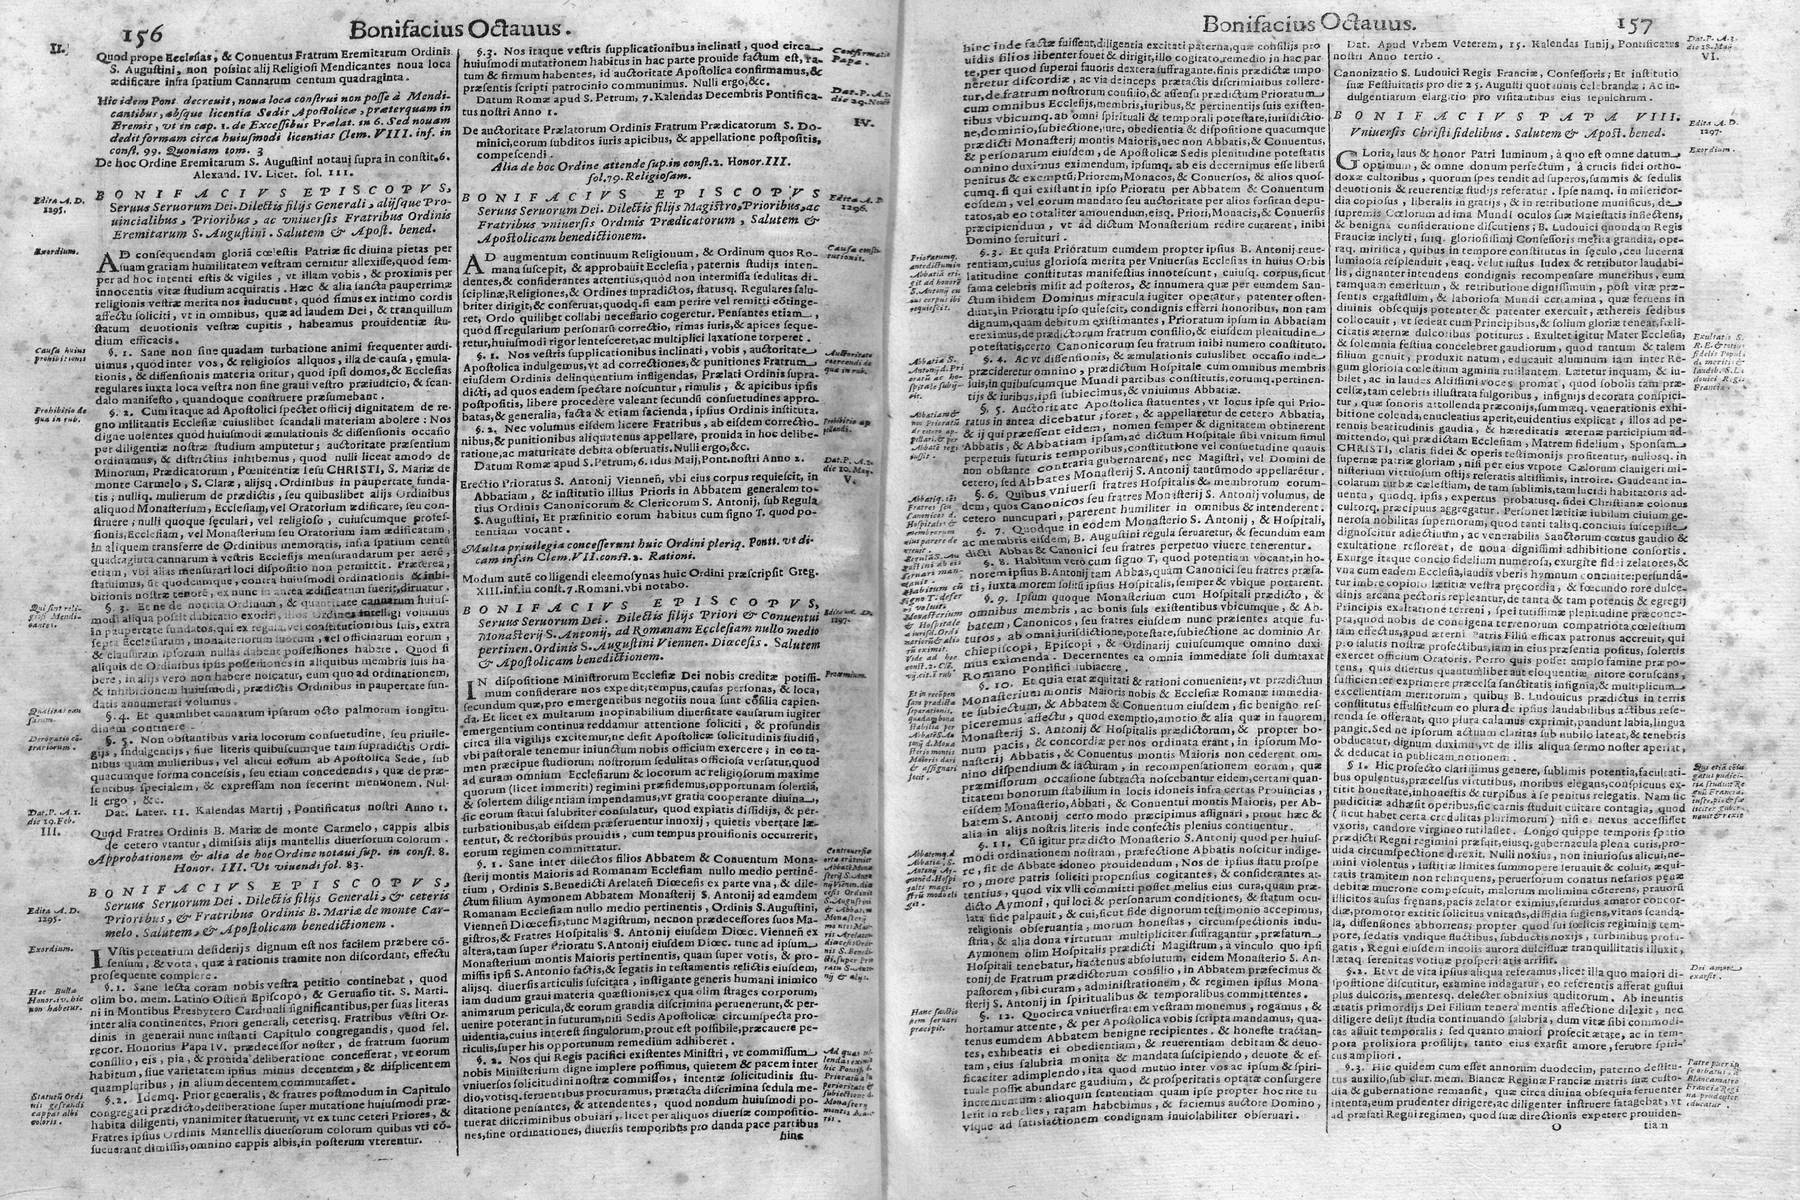 156
Bonifacius Octauus.
II.
Quod prope Ecclesias, & Conuentus Fratrum Eremitarum Ordinis
S. Augustini, non possint alij Religiosi Mendicantes noua loca
ædificare infra spatium Cannarum centum quadraginta.
Hic idem Pont. decreuit, noua loca construi non posse à Mendi-
cantibus, absque licentia Sedis Apostolicæ, præterquam in
Eremis, vt in cap. 1. de Excessibus Prælat. in 6. Sed nouam
dedit formam circa huiusmodi licentias Clem. VIII. inf. in
const. 99. Quoniam tom. 3
De hoc Ordine Eremitarum S. Augustini notaui supra in constit. 6.
Alexand. IV. Licet. fol. 111.
BONIFACIVS EPISCOPVS,
Seruus Seruorum Dei. Dilectis filijs Generali, alijsque Pro-
uincialibus, Prioribus, ac vniuersis Fratribus Ordinis
Eremitarum S. Augustini. Salutem & Apost. bened.
Edita A. D.
1295.
Exordium.
AD consequendam gloriã cœlestis Patriæ sic diuina pietas per
suam gratiam humilitatem vestram cernitur allexisse, quod sem-
per ad hoc intenti estis & vigiles, vt illam vobis, & proximis per
innocentis vitæ studium acquiratis. Hæc & alia sancta pauperrimæ
religionis vestræ merita nos inducunt, quòd simus ex intimo cordis
affectu soliciti, vt in omnibus, quæ ad laudem Dei, & tranquillum
statum deuotionis vestræ cupitis, habeamus prouidentiæ stu-
dium efficacis.
Causa huius
prohibitionis
§. 1. Sane non sine quadam turbatione animi frequenter audi-
uimus, quòd inter vos, & religiosos aliquos, illa de causa, æmula-
tionis, & dissensionis materia oritur, quod ipsi domos, & Ecclesias
regulares iuxta loca vestra non sine graui vestro præiudicio, & scan-
dalo manifesto, quandoque construere præsumebant.
Prohibitio de
qua in rub.
§. 2. Cum itaque ad Apostolici spectet officij dignitatem de re-
gno militantis Ecclesiæ cuiuslibet scandali materiam abolere: Nos
digne uolentes quòd huiusmodi æmulationis & dissensionis occasio
per diligentiæ nostræ studium amputetur; auctoritate præsentium
ordinamus, & districtius inhibemus, quod nulli liceat amodo de
Minorum, Prædicatorum, Pœnitentiæ Iesu CHRISTI, S. Mariæ de
monte Carmelo, S. Claræ, alijsq. Ordinibus in paupertate funda-
tis; nulliq. mulierum de prædictis, seu quibuslibet alijs Ordinibus
aliquod Monasterium, Ecclesiam, vel Oratorium ædificare, seu con-
struere; nulli quoque sęculari, vel religioso, cuiuscumque profes-
sionis, Ecclesiam, vel Monasterium seu Oratorium iam ædificatam,
in aliquem transferre de Ordinibus memoratis, infra spatium centũ
quadraginta cannarum à vestris Ecclesijs mensurandarum per aerẽ,
etiam, vbi aliàs mensurari loci dispositio non permittit. Præterea,
statuimus, ut quodcumque, contra huiusmodi ordinationis & inhi-
bitionis nostræ tenorẽ, ex nunc in antea ædificatum fuerit, diruatur.
Qui sint reli-
giosi Mendi-
cantes.
§. 3. Et ne de notitia Ordinum, & quantitate cannarum huius-
modi aliqua possit dubitatio exoriri, illos Ordines intelligi volumus
in paupertate fundatos, qui ex regula, vel constitutionibus suis, extra
septa Ecclesiarum, monasteriorum suorum, vel officinarum eorum,
& clausuram ipsorum nullas debent possessiones habere. Quod si
aliquis de Ordinibus ipsis possessiones in aliquibus membris suis ha-
bere, in alijs verò non habere noscatur, eum quo ad ordinationem,
& inhibitionem huiusmodi, prædictis Ordinibus in paupertate fun-
datis annumerari volumus.
§. 4. Et quamlibet cannarum ipsarum octo palmorum longitu-
dinem continere.
Derogatio cõ-
trariorum.
§. 5. Non obstantibus varia locorum consuetudine, seu priuile-
gijs, indulgentijs, siue literis quibuscumque tam supradictis Ordi-
nibus quam mulieribus, vel alicui eorum ab Apostolica Sede, sub
quacumque forma concessis, seu etiam concedendis, quæ de præ-
sentibus specialem, & expressam non fecerint mentionem. Nul-
li ergo, &c.
Dat. Later. 11. Kalendas Martij, Pontificatus nostri Anno 1.
Dat. P. A. 1.
die 19. Feb.
III.
Quòd Fratres Ordinis B. Mariæ de monte Carmelo, cappis albis
de cetero vtantur, dimissis alijs mantellis diuersorum colorum.
Approbationem & alia de hoc Ordine notaui sup. in const. 8.
Honor. III. Vt viuendi fol. 83.
BONIFACIVS EPISCOPVS,
Seruus Seruorum Dei. Dilectis filijs Generali, & ceteris
Prioribus, & Fratribus Ordinis B. Mariæ de monte Car-
melo. Salutem, & Apostolicam benedictionem.
Edita A. D.
1295.
Exordium.
IVstis petentium desiderijs dignum est nos facilem præbere cõ-
sensum, & vota, quæ à rationis tramite non discordant, effectu
prosequente complere.
Hac Bulla
Honor. iv. hic
non habetur.
§. 1. Sane lecta coram nobis vestra petitio continebat, quod
olim bo. mem. Latino Ostien Episcopo, & Geruasio tit. S. Marti-
ni in Montibus Presbytero Cardinali significantibus, per suas literas
inter alia continentes, Priori generali, ceterisq. Fratribus vestri Or-
dinis in generali nunc instanti Capitulo congregandis, quod fel.
recor. Honorius Papa IV. prædecessor noster, de fratrum suorum
consilio, eis, pia, & prouida deliberatione concesserat, vt eorum
habitum, siue varietatem ipsius minus decentem, & displicentem
quampluribus, in alium decentem commutasset.
Statutũ Ordi
nis gestandi
cappas albi
coloris.
§. 2. Idemq. Prior generalis, & fratres postmodum in Capitulo
congregati prædicto, deliberatione super mutatione huiusmodi præ-
habita diligenti, vnanimiter statuerunt, vt ex tunc ceteri Priores, &
Fratres ipsius Ordinis Mantellis diuersorum colorum quibus vti cõ-
sueuerant dimissis, omnino cappis albis, in posterum vterentur.
§. 3. Nos itaque vestris supplicationibus inclinati, quod circa
huiusmodi mutationem habitus in hac parte prouide factum est, ra-
tum & firmum habentes, id auctoritate Apostolica confirmamus, &
præsentis scripti patrocinio communimus. Nulli ergo, &c.
Datum Romæ apud S. Petrum, 7. Kalendas Decembris Pontifica-
tus nostri Anno 1.
Confirmatio
Papæ.
IV.
De auctoritate Prælatorum Ordinis Fratrum Prædicatorum S. Do-
minici, eorum subditos iuris apicibus, & appellatione postpositis,
compescendi.
Alia de hoc Ordine attende sup. in const. 2. Honor. III.
fol. 79. Religiosam.
BONIFACIVS EPISCOPVS
Seruus Seruorum Dei. Dilectis filijs Magistro, Prioribus, ac
Fratribus vniuersis Ordinis Prædicatorum, Salutem &
Apostolicam benedictionem.
Edita A. D.
1296.
AD augmentum continuum Religionum, & Ordinum quos Ro-
mana suscepit, & approbauit Ecclesia, paternis studijs inten-
dentes, & considerantes attentius, quòd non intermissa sedulitas di-
sciplinæ, Religiones, & Ordines supradictos, statusq. Regulares salu-
briter dirigit, & conseruat, quodq. si eam perire vel remitti cõtinge-
ret, Ordo quilibet collabi necessario cogeretur. Pensantes etiam,
quòd si regularium personarũ correctio, rimas iuris, & apices seque-
retur, huiusmodi rigor lentesceret, ac multiplici laxatione torperet.
§. 1. Nos vestris supplicationibus inclinati, vobis, auctoritate
Apostolica indulgemus, vt ad correctiones, & punitiones Fratrum
eiusdem Ordinis delinquentium infligendas, Prælati Ordinis supra-
dicti, ad quos eadem spectare noscuntur, rimulis, & apicibus ipsis
postpositis, libere procedere valeant secundũ consuetudines appro-
batas, & generalia, facta & etiam facienda, ipsius Ordinis instituta.
§. 2. Nec volumus eisdem licere Fratribus, ab eisdem correctio-
nibus, & punitionibus aliquatenus appellare, prouida in hoc delibe-
ratione, ac maturitate debita obseruatis. Nulli ergo, &c.
Datum Romæ apud S. Petrum, 6. idus Maij, Pont. nostri Anno 2.
V.
Erectio Prioratus S. Antonij Viennẽ, vbi eius corpus requiescit, in
Abbatiam, & institutio illius Prioris in Abbatem generalem to-
tius Ordinis Canonicorum & Clericorum S. Antonij, sub Regula
S. Augustini, Et præfinitio eorum habitus cum signo T. quod po-
tentiam vocant.
Multa priuilegia concesserunt huic Ordini pleriq. Pontt. vt di-
cam inf. in Clem. VII. const. 2. Rationi.
Modum autẽ colligendi eleemosynas huic Ordini præscripsit Greg.
XIII. inf. in const. 7. Romani. vbi notabo.
BONIFACIVS EPISCOPVS,
Seruus Seruorum Dei. Dilectis filijs Priori & Conuentui
Monasterij S. Antonij, ad Romanam Ecclesiam nullo medio
pertinen. Ordinis S. Augustini Viennen. Diœcesis. Salutem
& Apostolicam benedictionem.
IN dispositione Ministrorum Ecclesiæ Dei nobis creditæ potissi-
mum considerare nos expedit, tempus, causas personas, & loca,
secundum quæ, pro emergentibus negotijs noua sunt cõsilia capien-
da. Et licet ex multarum inopinabilium diuersitate causarum iugiter
emergentium continua reddamur attentione soliciti, & profundis
circa illa vigilijs excitemur, ne desit Apostolicæ solicitudinis studiũ,
vbi pastorale tenemur iniunctum nobis officium exercere; in eo ta-
men præcipue studiorum nostrorum sedulitas officiosa versatur, quod
ad curam omnium Ecclesiarum & locorum ac religiosorum maxime
quorum (licet immeriti) regimini præsidemus, opportunam solertiã,
& solertem diligentiam impendamus, vt gratia cooperante diuina,
sic eorum status salubriter consulatur, quod expiati dissidijs, & per-
turbationibus, ab eisdem præseruentur innoxij, quietis vbertate læ-
tentur, & rectoribus prouidis, cum tempus prouisionis occurrerit,
eorum regimen committatur.
§. 1. Sane inter dilectos filios Abbatem & Conuentum Mona-
sterij montis Maioris ad Romanam Ecclesiam nullo medio pertinẽ-
tium, Ordinis S. Benedicti Arelateñ Diœcesis ex parte vna, & dile-
ctum filium Aymonem Abbatem Monasterij S. Antonij ad eamdem
Romanam Ecclesiam nullo medio pertinentis, Ordinis S. Augustini,
Vienneñ Diœcesis, tunc Magistrum, necnon prædecessores suos Ma-
gistros, & Fratres Hospitalis S. Antonij eiusdem Diœc. Vienneñ ex
altera, tam super Prioratu S. Antonij eiusdem Diœc. tunc ad ipsum
Monasterium montis Maioris pertinentis, quam super votis, & pro-
missis ipsi S. Antonio factis, & legatis in testamentis relictis eisdem,
alijsq. diuersis articulis suscitata, instigante generis humani inimico
iam dudum graui materia quæstionis, ex qua olim strages corporum,
animarum pericula, & eorum grandia discrimina peruenerunt, & per-
uenire poterant in futurum, nisi Sedis Apostolicæ circumspecta pro-
uidentia, cuius interest singulorum, prout est possibile, præcauere pe-
riculis, super his opportunum remedium adhiberet.
§. 2. Nos qui Regis pacifici existentes Ministri, vt commissum
nobis Ministerium digne implere possimus, quietem & pacem inter
vniuersos solicitudini nostræ commissos, intentæ solicitudinis stu-
dio, votisq. feruentibus procuramus, prætacta discrimina sedula me-
ditatione pensantes, & attendentes, quod nondum huiusmodi po-
tuerat discriminibus obuiari, licet per aliquos diuersæ compositio-
nes, siue ordinationes, diuersis temporibus pro danda pace partibus
hinc
Bonifacius Octauus.
157
hinc inde factæ fuissent, diligentia excitati paterna, quæ consilijs pro
uidis filios libenter fouet & dirigit, illo cogitato remedio in hac par
te, per quod superni fauoris dextera suffragante, finis prædictæ impo-
neretur discordiæ, ac via deinceps prætactis discriminibus tollere-
tur, de fratrum nostrorum consilio, & assensu prædictum Prioratum
cum omnibus Ecclesijs, membris, iuribus, & pertinentijs suis existen-
tibus vbicumque, ab omni spirituali & temporali potestate, iurisdictio-
ne, dominio, subiectione, iure, obedientia & dispositione quacumque
prædicti Monasterij montis Maioris, nec non Abbatis, & Conuentus,
& personarum eiusdem, de Apostolicæ Sedis plenitudine potestatis
omnino duximus eximendum, ipsumq. ab eis decernimus esse liberũ
penitus & exemptũ; Priorem, Monacos, & Conuersos, & alios quos-
cumq. si qui existant in ipso Prioratu per Abbatem & Conuentum
eosdem, vel eorum mandato seu auctoritate per alios forsitan depu-
tatos, ab eo totaliter amouendum, eisq. Priori, Monacis, & Conuersis
præcipiendum, vt ad dictum Monasterium redire curarent, inibi
Domino seruituri.
§. 3. Et quia Prioratum eumdem propter ipsius B. Antonij reue-
rentiam, cuius gloriosa merita per Vniuersas Ecclesias in huius Orbis
latitudine constitutas manifestius innotescunt, cuiusq. corpus, sicut
fama celebris misit ad posteros, & innumera quæ per eumdem San-
ctum ibidem Dominus miracula iugiter operatur, patenter osten-
dunt, in Prioratu ipso quiescit, condignis efferri honoribus, non tam
dignum, quam debitum existimantes, Prioratum ipsum in Abbatiam
ereximus, de prædictorum fratrum consilio, & eiusdem plenitudine
potestatis, certo Canonicorum seu fratrum inibi numero constituto.
§. 4. Ac vt dissensionis, & æmulationis cuiuslibet occasio inde
præcideretur omnino, prædictum Hospitale cum omnibus membris
suis, in quibuscumque Mundi partibus constitutis, eorumq. pertinen-
tijs & iuribus, ipsi subiecimus, & vniuimus Abbatiæ.
§. 5. Auctoritate Apostolica statuentes, vt locus ipse qui Prio-
ratus in antea dicebatur; foret, & appellaretur de cetero Abbatia,
& ij qui præessent eidem, nomen semper & dignitatem obtinerent
Abbatis, & Abbatiam ipsam, ac dictum Hospitale sibi vnitum simul
perpetuis futuris temporibus, constitutione vel consuetudine quauis
non obstante contraria gubernarent, nec Magistri, vel Domini de
cetero, sed Abbates Monasterij S. Antonij tantũmodo appellaretur.
§. 6. Quibus vniuersi fratres Hospitalis & membrorum eorum-
dem, quos Canonicos seu fratres Monasterij S. Antonij volumus, de
cetero nuncupari, parerent humiliter in omnibus & intenderent.
§. 7. Quodque in eodem Monasterio S. Antonij, & Hospitali,
ac membris eisdem, B. Augustini regula seruaretur, & secundum eam
dicti Abbas & Canonici seu fratres perpetuo viuere tenerentur.
§. 8. Habitum vero cum signo T, quod potentiam vocant, in ho-
norem ipsius B. Antonij tam Abbas, quam Canonici seu fratres præfa-
ti, iuxta morem solitũ ipsius Hospitalis, semper & vbique portarent.
§. 9. Ipsum quoque Monasterium cum Hospitali prædicto, &
omnibus membris, ac bonis suis existentibus vbicumque, & Ab-
batem, Canonicos, seu fratres eiusdem nunc præsentes atque fu-
turos, ab omni iurisdictione, potestate, subiectione ac dominio Ar-
chiepiscopi, Episcopi, & Ordinarij cuiuscumque omnino duxi-
mus eximenda. Decernentes ea omnia immediate soli dumtaxat
Romano Pontifici subiacere.
§. 10. Et quia erat æquitati & rationi conueniens, vt prædictum
Monasterium montis Maioris nobis & Ecclesiæ Romanæ immedia-
te subiectum, & Abbatem & Conuentum eiusdem, sic benigno res-
piceremus affectu, quod exemptio, amotio & alia quæ in fauorem
Monasterij S. Antonij & Hospitalis prædictorum, & propter bo-
num pacis, & concordiæ per nos ordinata erant, in ipsorum Mo-
nasterij Abbatis, & Conuentus montis Maioris non cederent om-
nino dispendium & iacturam, in recompensationem eorum, quæ
præmissorum occasione subtracta noscebantur eisdem, certam quan-
titatem bonorum stabilium in locis idoneis infra certas Prouincias,
eisdem Monasterio, Abbati, & Conuentui montis Maioris, per Ab-
batem S. Antonij certo modo præcipimus assignari, prout hæc &
alia in alijs nostris literis inde confectis plenius continetur.
§. 11. Cũ igitur prædicto Monasterio S. Antonij quod per huius-
modi ordinationem nostram, præfectione Abbatis noscitur indige-
re, sit de Abbate idoneo prouidendum, Nos de ipsius statu prospe
ro, more patris soliciti propensius cogitantes, & considerantes at-
tente, quod vix vlli committi posset melius eius cura, quam præ-
dicto Aymoni, qui loci & personarum conditiones, & statum ocu-
lata fide palpauit, & cui, sicut fide dignorum testimonio accepimus,
religionis obseruantia, morum honestas, circumspectionis indu-
stria, & alia dona virtutum multipliciter suffragantur, præfatum
Aymonem olim Hospitalis prædicti Magistrum, à vinculo quo ipsi
Hospitali tenebatur, hactenus absolutum, eidem Monasterio S. An-
tonij de fratrum prædictorum consilio, in Abbatem præfecimus &
pastorem, sibi curam, administrationem, & regimen ipsius Mona-
sterij S. Antonij in spiritualibus & temporalibus committentes.
§. 12. Quocirca vniuersitatem vestram monemus, rogamus, &
hortamur attente, & per Apostolica vobis scripta mandamus, qua-
tenus eumdem Abbatem benigne recipientes, & honeste tractan-
tes, exhibeatis ei obedientiam, & reuerentiam debitam & deuo-
tam, eius salubria monita & mandata suscipiendo, deuote & ef-
ficaciter adimplendo, ita quod mutuo inter vos ac ipsum & spiri-
tuale possit abundare gaudium, & prosperitatis optatæ consurgere
incrementum: alioquin sententiam quam ipse propter hoc tu-
lerit in rebelles, ratam habebimus, & faciemus auctore Domino,
vsque ad satisfactionem condignam inuiolabiliter obseruari.
Dat. Apud Vrbem Veterem, 15. Kalendas Iunij, Pontificatus
nostri Anno tertio.
VI.
Canonizatio S. Ludouici Regis Franciæ, Confessoris; Et institutio
suæ Festiuitatis pro die 25. Augusti quotannis celebrandæ: Ac in-
dulgentiarum elargitio pro visitantibus eius sepulchrum.
BONIFACIVS PAPA VIII.
Vniuersis Christi fidelibus. Salutem & Apost. bened.
Edita A. D.
1297.
Exordium.
GLoria, laus & honor Patri luminum, à quo est omne datum
optimum, & omne donum perfectum, à cunctis fidei ortho-
doxæ cultoribus, quorum spes tendit ad superos, summis & sedulis
deuotionis & reuerentiæ studijs referatur. Ipse namq. in misericor-
dia copiosus, liberalis in gratijs, & in retributione munificus, de
supremis Cœlorum ad ima Mundi oculos suæ Maiestatis inflectens,
& benigna consideratione discutiens; B. Ludouici quondam Regis
Franciæ inclyti, suiq. gloriosissimi Confessoris merita grandia, ope-
raq. mirifica, quibus in tempore constitutus in sęculo, ceu lucerna
luminosa resplenduit, eaq. velut iustus Iudex & retributor laudabi-
lis, dignanter intendens condignis recompensare muneribus, eum
tamquam emeritum, & retributione dignissimum, post vitæ præ-
sentis ergastulum, & laboriosa Mundi certamina, quæ feruens in
diuinis obsequijs potenter & patenter exercuit, æthereis sedibus
collocauit, vt sedeat cum Principibus, & solium gloriæ teneat, fœli-
citatis æternæ dulcoribus potiturus. Exultet igitur Mater Ecclesia,
& solemnia festiua concelebret gaudiorum, quòd tantum & talem
filium genuit, produxit natum, educauit alumnum iam inter Re-
gum gloriosa cœlestium agmina rutilantem. Lætetur inquam, & iu-
bilet, ac in laudes Altissimi voces promat, quod sobolis tam præ-
celsæ, tam celebris illustrata fulgoribus, insignijs decorata conspici-
tur, quæ sonoris attollenda præconijs, summæq. venerationis exhi-
bitione colenda, enucleatius aperit, euidentius explicat, illos ad pe-
rennis beatitudinis gaudia, & hæreditatis æternæ participium ad-
mittendo, qui prædictam Ecclesiam, Matrem fidelium, Sponsam
CHRISTI, claris fidei & operis testimonijs profitentur, nullosq. in
supernæ patriæ gloriam, nisi per eius vtpote Cœlorum clauigeri mi-
nisterium, ostijs reseratis altissimis, introire. Gaudeant in-
colarum turbæ cælestium, de tam sublimis, tam lucidi habitatoris ad-
uentu, quodq. ipsis, expertus probatusq. fidei Christianæ colonus
cultorq. præcipuus aggregatur. Personet lætitiæ iubilum ciuium ge-
nerosa nobilitas supernorum, quod tanti talisq. conciuis susceptiste
dignitur adiectione, ac venerabilis Sanctorum cœtus gaudio &
exultatione resloreat, de noua dignissimi adhibitione consortis.
Exurge itaque concio fidelium numerosa, exurgite fidei zelatores, &
vna cum eadem Ecclesia, laudis vberis hymnum concinite: persundã-
tur imbre copioso lætitiæ vestra præcordia, & fœcundo rore dulce-
dinis arcana pectoris repleantur, de tanta & tam potentis & egregij
Principis exaltatione terreni, spei tutissimæ plenitudine præconce-
pta, quod nobis de conuigena terrenorum compatriota cœlestium
iam effectus, apud æterni Patris Filiũ efficax patronus accreuit, qui
pro salutis nostræ prosectibus, iam in eius præsentia positus, solertis
exercet officium Oratoris. Porro quis posset amplo famine præpo-
tens, quis disertus quantumlibet aut eloquentiæ nitore coruscans,
sufficienter exprimere præcelsa sanctitatis insignia, & multiplicium
excellentiam meritorum, quibus B. Ludouicus prædictus in terris
constitutus effulsit? cum eo plura de ipsius laudabilibus actibus refe-
renda se offerant, quo plura calamus exprimit, pandunt labia, lingua
pangit. Sed ne ipsorum actuum claritas sub nubilo lateat, & tenebris
obducatur, dignum duximus, vt de illis aliqua sermo noster aperiat,
& deducat in publicam notionem.
§. 1. Hic profecto clarissimus genere, sublimis potentia, facultati-
bus opulentus, præcelsus virtutibus, moribus elegans, conspicuus e-
titit honestate, inhonestis & turpibus à se penitus relegatis. Nam sic
pudicitiæ adhæsit operibus, sic carnis studuit euitare contagia, quòd
(sicut habet certa credulitas plurimorum) nisi ei nexus accessisset
vxoris, candore virgineo rutilasset. Longo quippe temporis spatio
prædicti Regni regimini præfuit, eiusq. gubernacula plena curis, pro-
uida circumspectione direxit. Nulli noxius, non iniuriosus alicui, ne-
mini violentus iustitiæ limites summopere seruauit & coluit, æqui-
tatis tramitem non relinquens, peruersorum conatus nefarios pœnæ
debitæ mucrone compescuit, malorum molimina cõterens, prauorũ
illicitos ausus frangens, pacis zelator eximius, feruidus amator concor-
diæ, promotor extitit solicitus vnitatis, dissidia fugiens, vitans scanda-
la, dissensiones abhorrens; propter quod sui fœlicis regiminis tem-
pore, sedatis vndique fluctibus, subductis noxijs, turbinibus profli-
gatis, Regni eiusdem incolis aurora dulciflua tranquillitatis illuxit,
lætaq. serenitas votiuæ prosperitatis arrisit.
§. 2. Et vt de vita ipsius aliqua referamus, licet illa quo maiori di-
spositione discutitur, examine indagatur, eo referentis afferat gustui
plus dulcoris, mentesq. delectet obnixius auditorum. Ab ineuntis
ætatis primordijs Dei Filium tenera mentis affectione dilexit, nec
diligere desijt studia continuando salubria, dum vitæ sibi commodi-
tas affuit temporalis; sed quanto maiori profecit ætate, ac in tem-
pora prolixiora profilijt, tanto eius exarsit amore, feruore spiri-
tus ampliori.
§. 3. Hic quidem cum esset annorum duodecim, paterno destitu-
tus auxilio, sub clar. mem. Blancæ Reginæ Franciæ matris suæ custo-
dia & gubernatione remansit, quæ circa diuina obsequia feruenter
intenta, eum prudenter dirigere, ac diligenter instruere satagebat, vt
ad præfati Regni regimen, quod suæ directionis expetere prouiden-
O
tiam